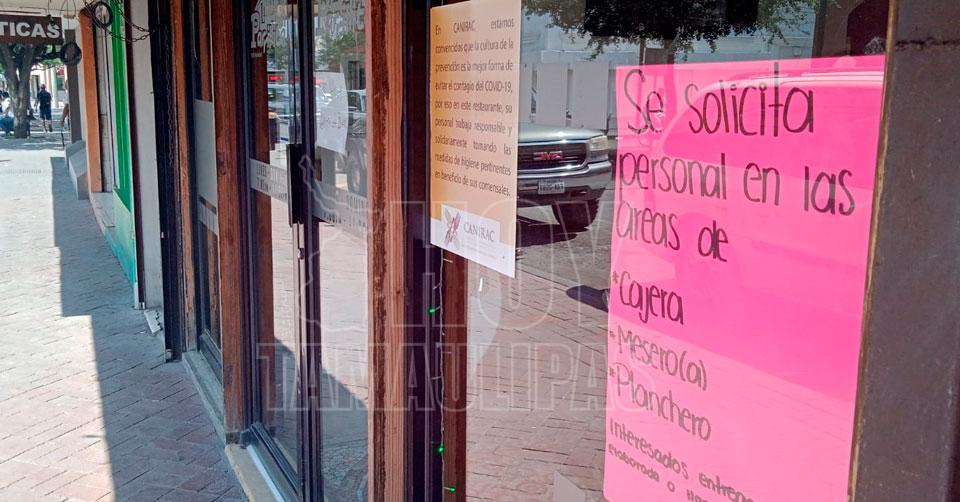 TICAS
En CANIRAC estamos
convencidos que la cultura de la
prevención es la mejor forma de
evitar el contagio del COVID-19,
por eso en este restaurante, su
personal trabaja responsable y
solidariamente tomando las
medidas de higiene pertinentes
en beneficio de sus comensales.
CANIRAC
GMC
Se solicita
personal en las
áreas de
*Cajera
*Mesero(a)
*Planchero
Interesados
elaborada o
HOY
TAMAULIPAS